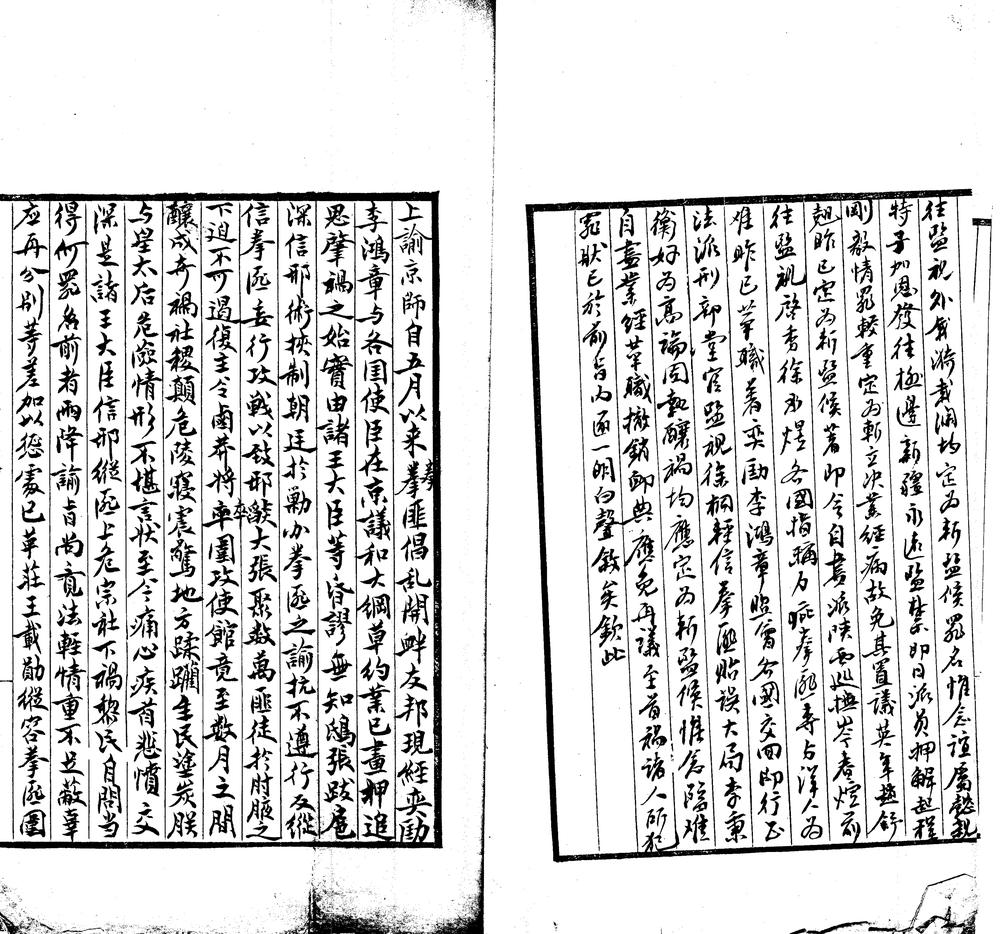 往監視外載漪載瀾均定為斬監候罪名惟念誼屬懿親
特予加恩發往極邊新疆永遠監禁即日派員押解起程
剛毅情罪較重定為斬立決業經病故免其置議英年趙舒
翹昨已定為斬監候著即令自盡派陝西巡撫岑春煊前
往監視啓秀徐承煜各國指稱力庇拳匪專與洋人為
难昨已革職著奕劻李鴻章照會各國交回即行正
法派刑部堂官監視徐桐輕信拳匪貽誤大局李秉
衡好為高論固執釀禍均應定為斬監候惟念臨难
自盡業經革職撤銷卹典應免再議至首禍諸人所犯
罪狀已於前旨內逐一明白聲敘矣欽此
上諭京師自五月以来拳匪倡乱開衅友邦現經奕劻
李鴻章与各国使臣在京議和大綱草約業已畫押追
思肇禍之始實由諸王大臣等昏謬無知鴟張跋扈
深信邪術挾制朝廷於勦办拳匪之諭抗不遵行反縱
信拳匪妄行攻戰以致邪燄大張聚数萬匪徒於肘腋之
下迫不可遏復主令鹵莽將卒圍攻使館竟至数月之間
釀成奇禍社稷顛危陵寝震驚地方蹂躪生民塗炭朕
与皇太后危險情形不堪言狀至今痛心疾首悲憤交
深是諸王大臣信邪縱匪上危宗社下禍黎民自問当
得何罪名前者兩降諭旨尚覺法輕情重不足蔽辜
应再分別等差加以懲處已革莊王載勛縱容拳匪圍